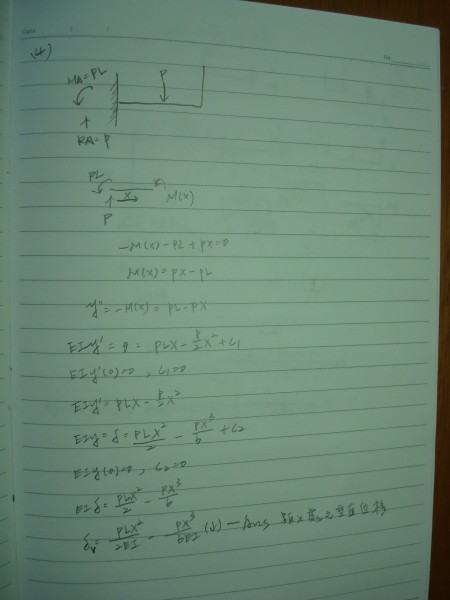 Date
No.
(4)
MA=PL
P
RA=P
PL
x
M(x)
P
-M(x)-PL+PX=0
M(x)=PX-PL
y''=-M(x)=PL-PX
EIy'=θ=PLX-P/2 X²+C1
EIy'(0)=0, C1=0
EIy'=PLX-P/2 X²
EIy=δ=PLX²/2-PX³/6+C2
EIy(0)=0, C2=0
EIδ=PLX²/2-PX³/6
δv=PLX²/2EI-PX³/6EI(↓)—Ans 距X處之垂直位移